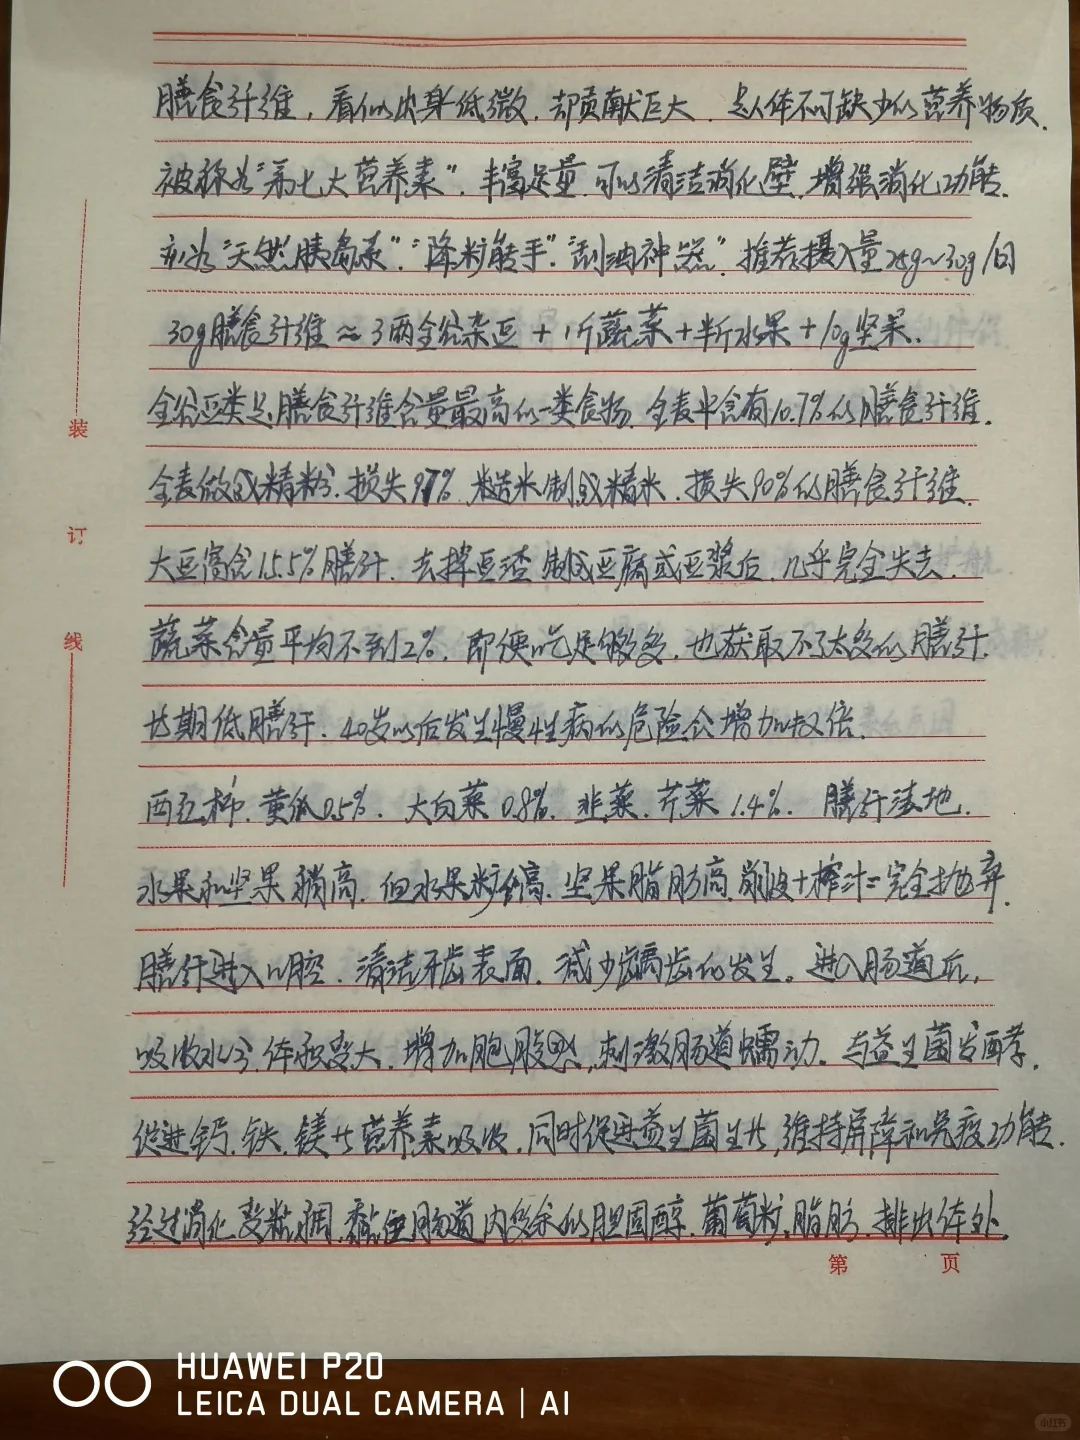 膳食纤维，看似出身低微，却贡献巨大，是人体不可缺少的营养物质．
被称为“第七大营养素”．丰富足量，可以清洁消化壁，增强消化功能．
亦为“天然胰岛素”．“降糖能手”．“刮油神器”．推荐摄入量25g~30g/日
30g膳食纤维≈3两全谷杂豆+1斤蔬菜+半斤水果+10g坚果．
全谷豆类是膳食纤维含量最高的一类食物．全麦中含有10.7%的膳食纤维．
全麦做成精粉，损失97%．糙米制成精米，损失90%的膳食纤维．
大豆富含15.5%膳纤．去掉豆渣制成豆腐或豆浆后，几乎完全失去．
蔬菜含量平均不到2%．即便吃足够多，也获取不了太多的膳纤．
长期低膳纤．40岁以后发生慢性病的危险会增加数倍．
西红柿．黄瓜0.5%．大白菜0.8%．韭菜．芹菜1.4%．膳纤洼地．
水果和坚果稍高．但水果糖高．坚果脂肪高．削皮+榨汁=完全抛弃．
膳纤进入口腔．清洁牙齿表面．减少龋齿化发生。进入肠道后，
吸收水分，体积变大．增加饱腹感，刺激肠道蠕动．与益生菌发酵．
促进钙．铁．镁等营养素吸收．同时促进益生菌生长，维持屏障和免疫功能．
经过消化变粘稠．黏住肠道内多余的胆固醇．葡萄糖．脂肪．排出体外．
装
订
线
第 页
HUAWEI P20
LEICA DUAL CAMERA | AI
小红书